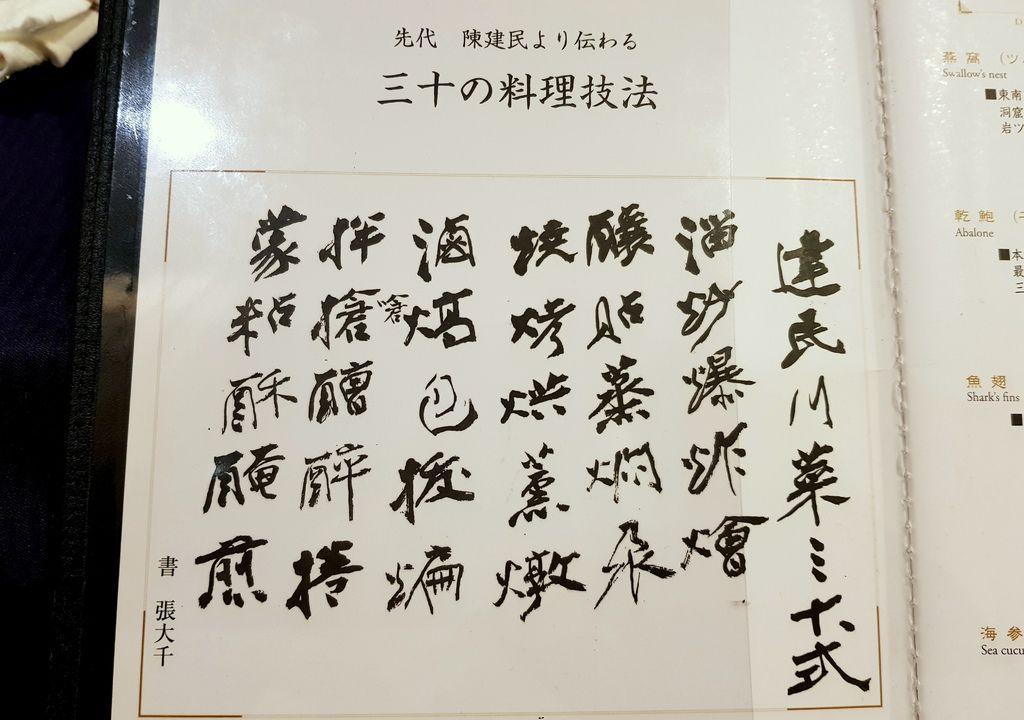 先代 陳建民より伝わる
三十の料理技法
建民川菜三十式
溜炒爆炸燴
釀貼蒸燜
燒烤烘薰燉
滷㷛包拔煸
拌搶嗆醩醉捲
蒙粘酥醃煎
書 張大千
燕窩 (ツ
Swallow's nest
■東南
洞窟
岩ツ
乾鮑
Abalone
■本
最
三
魚翅
Shark's fins
■
海参
Sea cucu